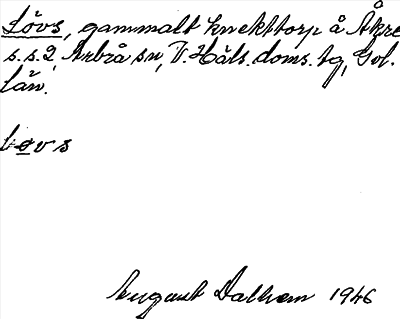 Lövs, gammalt knekttorp å Åkre
s.s.2, Arbrå sn, V. Häls. doms. tg, Gvl.
län.
løvs
August Dalhem 1946